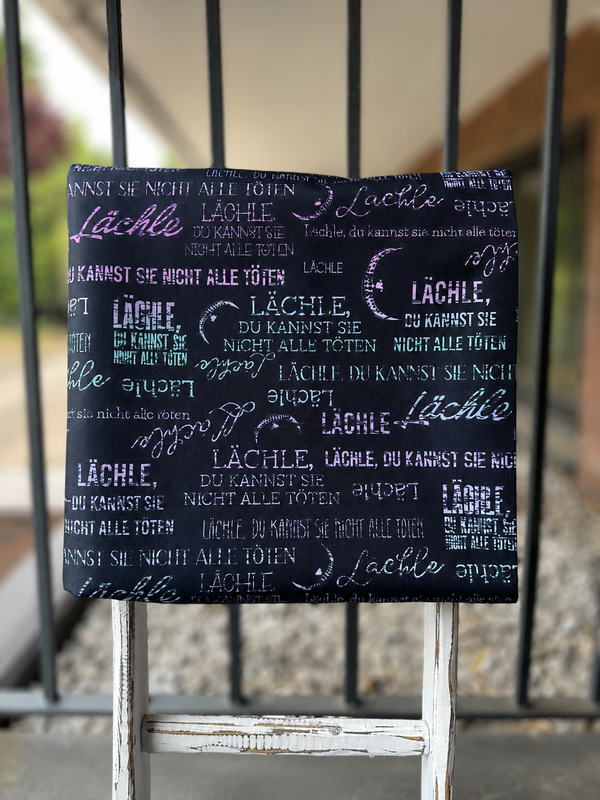 LÄCHLE, DU KANNST SIE NICHT ALLE TÖTEN
NICHT ALLE TÖTEN
ANNST SIE NICHT ALLE TÖTEN
Lächle
Lächle
Lächle
LÄCHLE,
DU KANNST SIE
NICHT ALLE TÖTEN
Lächle, du kannst sie nicht alle töten
Lächle
LÄCHLE
U KANNST SIE NICHT ALLE TÖTEN
LÄCHLE,
DU KANNST SIE
NICHT ALLE TÖTEN
Lächle
LÄCHLE,
DU KANNST SIE
NICHT ALLE TÖTEN
LÄCHLE,
DU KANNST SIE
NICHT ALLE TÖTEN
ÖTEN
Lächle
LÄCHLE, DU KANNST SIE NICHT
hle
Lächle
Lächle
Lächle
rt sie nicht alle töten
Lächle
Lächle
LÄCHLE
LÄCHLE,
DU KANNST SIE
NICHT ALLE TÖTEN
LÄCHLE, DU KANNST SIE NIC
LÄCHLE,
DU KANNST SIE
NICHT ALLE TÖTEN
Lächle
LÄCHLE,
DU KANNST SIE
NICHT ALLE TÖTEN
LÄCHLE, DU KANNST SIE NICHT ALLE TÖTEN
ANNST SIE NICHT ALLE TÖTEN
Lächle
Lächle
LÄCHLE,
DU KANNST SIE
Lächle
Lächle, du kannst sie nicht alle töten